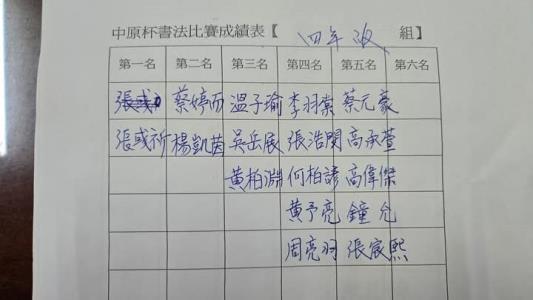 中原杯書法比賽成績表【四年級組】
第一名 第二名 第三名 第四名 第五名 第六名
蔡婷而 溫子瑜 李羽棠 蔡元豪
張彧祈 楊凱茵 吳岳展 張浩閔 高承萱
黃柏淵 何柏諺 高偉傑
黃予亮 鐘允
周亮羽 張宸熙